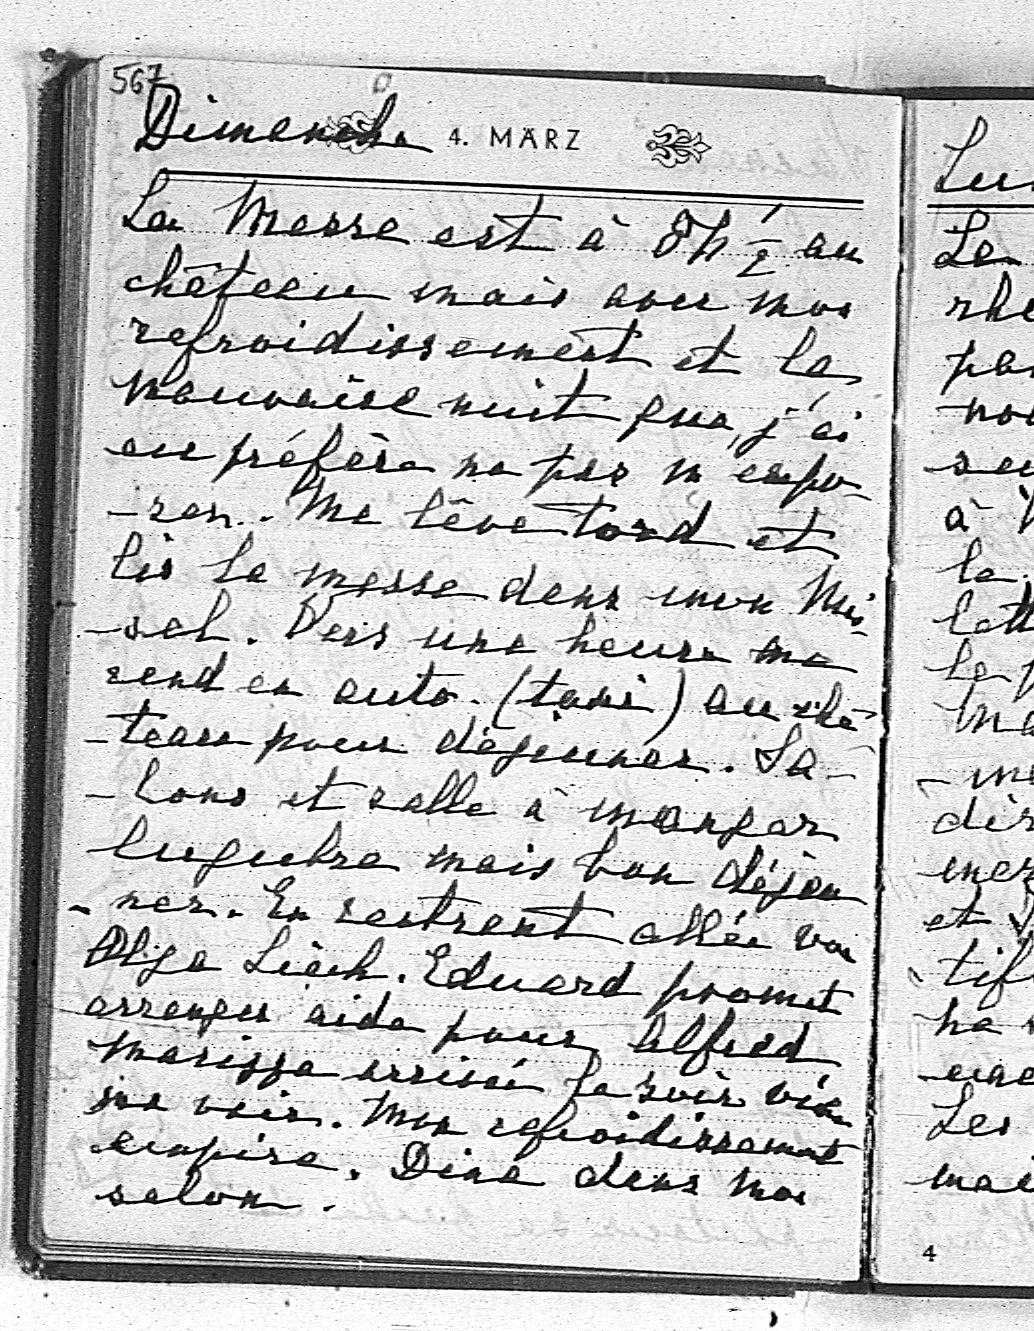 567
Dimanche 4. MÄRZ
La Messe est à 8h ½ au
château mais avec mon
refroidissement et la
mauvaise nuit que j'ai
eu préfère ne pas m'expo-
-ser. Me lève tard et
lis la messe dans mon Mis-
-sel. Vers une heure me
rend en auto (taxi) au châ-
-teau pour déjeuner. Sa-
-lons et salle à manger
lugubre mais bon déjeu
-ner. En rentrant allée voir
Olga Liech. Eduard promet
arranger aide pour Alfred
Marizza arrivée le soir vien
me voir. Mon refroidissement
empire. Dine dans mon
salon.
Lu
Le
rhe
pa
no
se
à
la
lett
Le p
Ma
- m
dîn
mes
et
tif
ha
Les
mai
4